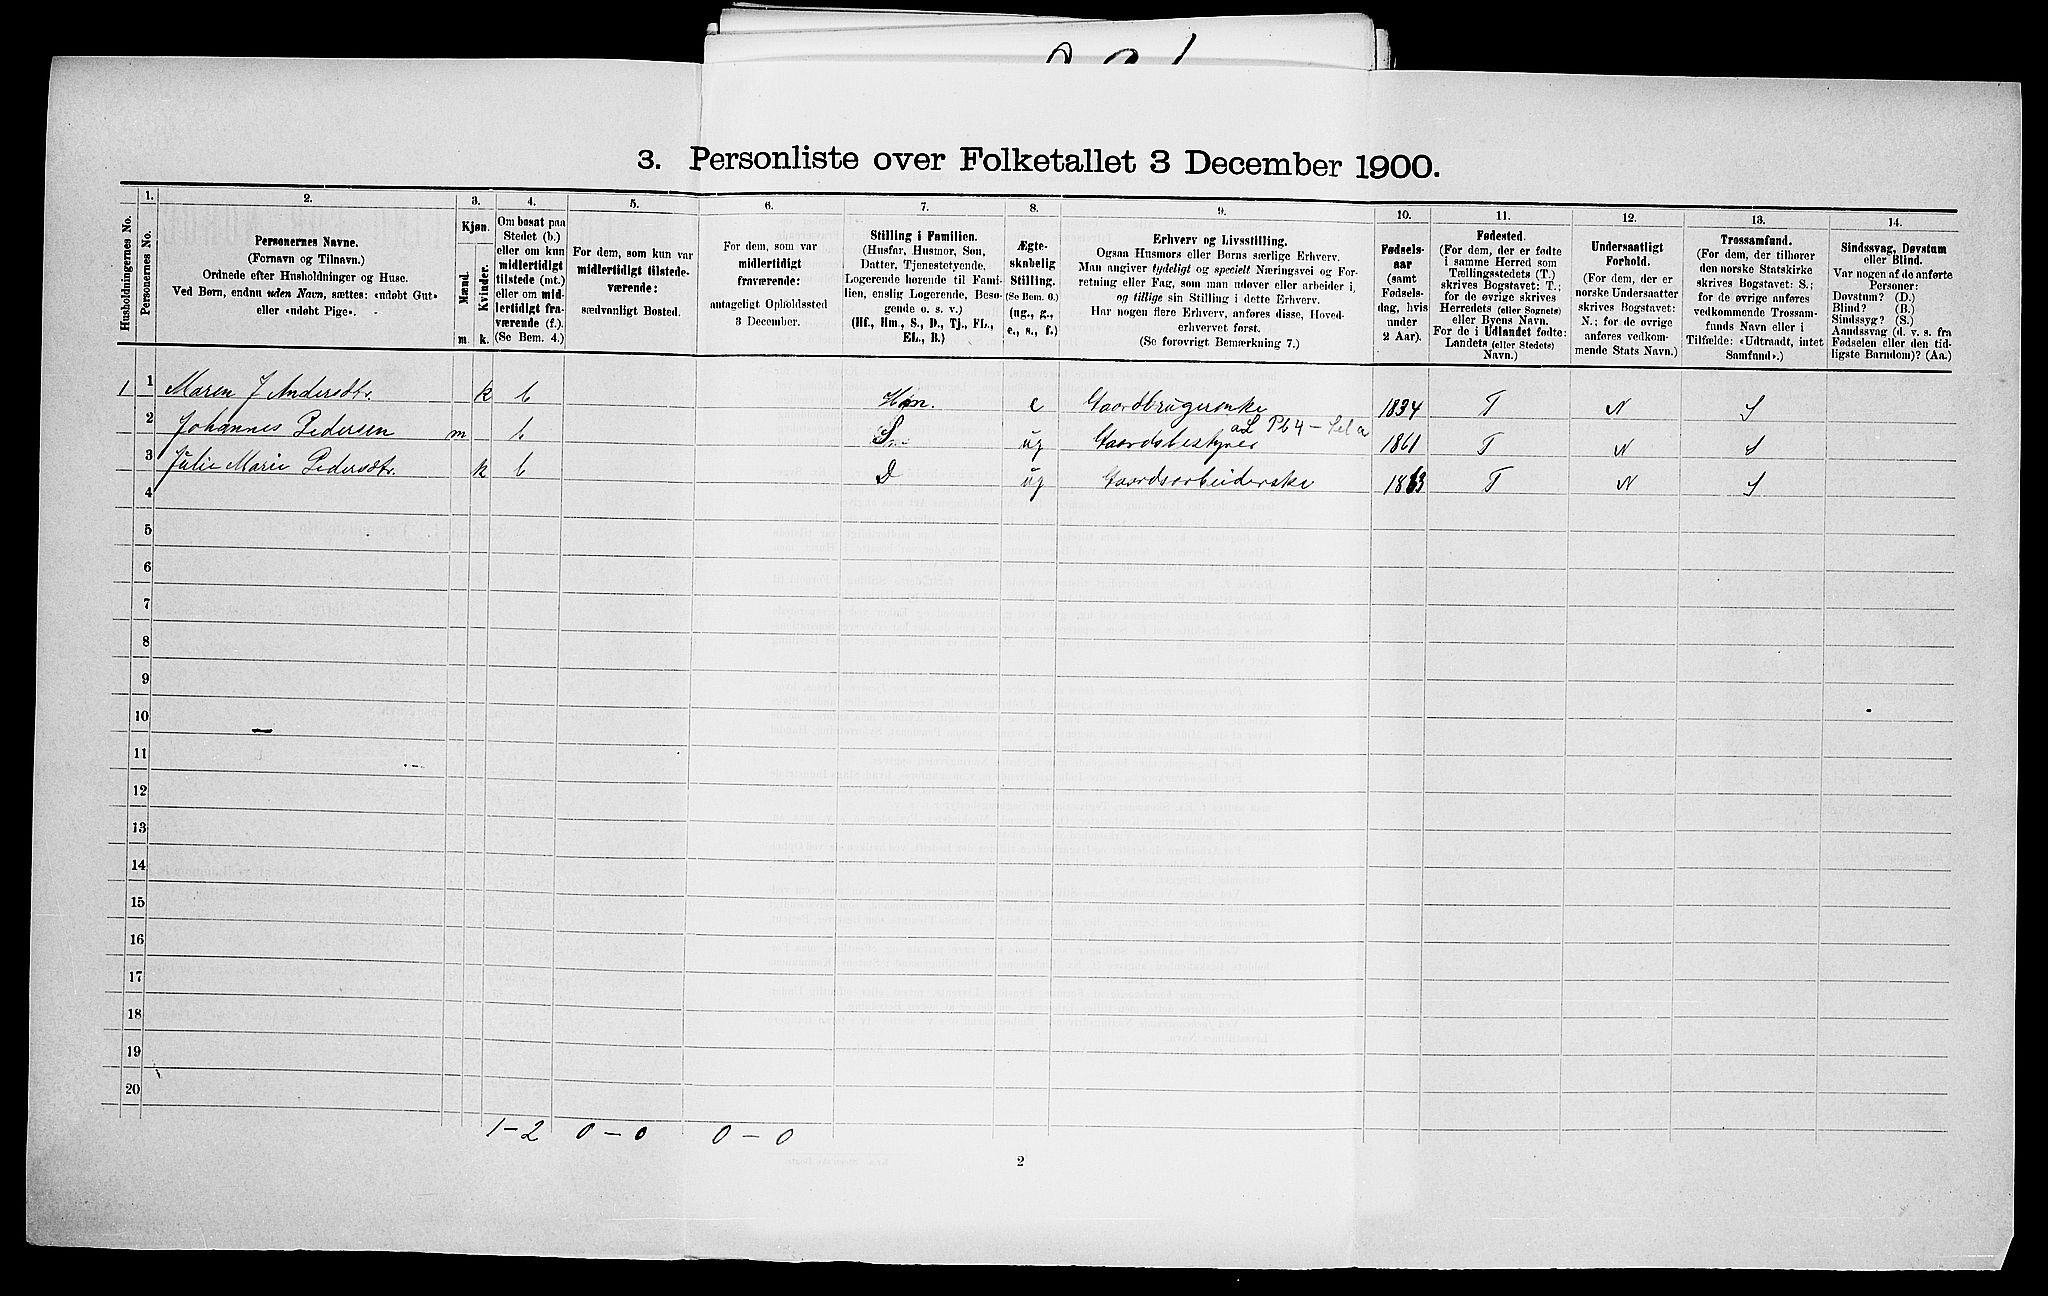 3. Personliste over Folketallet 3 December 1900.
1. 2. 3. 4. 5. 6. 7. 8. 9. 10. 11. 12. 13. 14.
Husholdningernes No.
Personernes No.
Personernes Navne.
(Fornavn og Tilnavn.)
Ordnede efter Husholdninger og Huse.
Ved Børn, endnu uden Navn, sættes: «udøbt Gut»
eller «udøbt Pige».
Kjøn.
Mænd.
Kvinder.
m. k.
Om bosat paa
Stedet (b.)
eller om kun
midlertidigt
tilstede (mt.)
eller om mid-
lertidigt fra-
værende (f.).
(Se Bem. 4.)
For dem, som kun var
midlertidigt tilstede-
værende:
sædvanligt Bosted.
For dem, som var
midlertidigt
fraværende:
antageligt Opholdssted
3 December.
Stilling i Familien.
(Husfar, Husmor, Søn,
Datter, Tjenestetyende,
Logerende hørende til Fami-
lien, enslig Logerende, Besø-
gende o. s. v.)
(Hf., Hm., S., D., Tj., FL.,
EL., B.)
Ægte-
skabelig
Stilling.
(Se Bem. 6.)
(ug., g.,
e., s., f.)
Erhverv og Livsstilling.
Ogsaa Husmors eller Børns særlige Erhverv.
Man angiver tydeligt og specielt Næringsvei og For-
retning eller Fag, som man udøver eller arbeider i,
og tillige sin Stilling i dette Erhverv.
Har nogen flere Erhverv, anføres disse, Hoved-
erhvervet først.
(Se forøvrigt Bemærkning 7.)
Fødsels-
aar
(samt
Fødsels-
dag, hvis
under
2 Aar).
Fødested.
(For dem, der er fødte
i samme Herred som
Tællingsstedets (T.)
skrives Bogstavet: T.;
for de øvrige skrives
Herredets (eller Sognets)
eller Byens Navn.
For de i Udlandet fødte:
Landets (eller Stedets)
Navn.)
Undersaatligt
Forhold.
(For dem, der er
norske Undersaatter
skrives Bogstavet:
N.; for de øvrige
anføres vedkom-
mende Stats Navn.)
Trossamfund.
(For dem, der tilhører
den norske Statskirke
skrives Bogstavet: S.;
for de øvrige anføres
vedkommende Trossam-
funds Navn eller i
Tilfælde: «Udtraadt, intet
Samfund».)
Sindssvag, Døvstum
eller Blind.
Var nogen af de anførte
Personer:
Døvstum? (D.)
Blind? (B.)
Sindssyg? (S.)
Aandssvag (d. v. s. fra
Fødselen eller den tid-
ligste Barndom)? (Aa.)
1 1 Maren J Andersdtr. k b Hm. e Gaardbrugerenke 1834 T N S
2 Johannes Pedersen m b S ug Gaardsbestyrer 1861 T N S
3 Julie Marie Pedersdtr. k b D ug Gaardsarbeiderske 1863 T N S
4
5
6
7
8
9
10
11
12
13
14
15
16
17
18
19
20
1-2 0-0 0-0
2